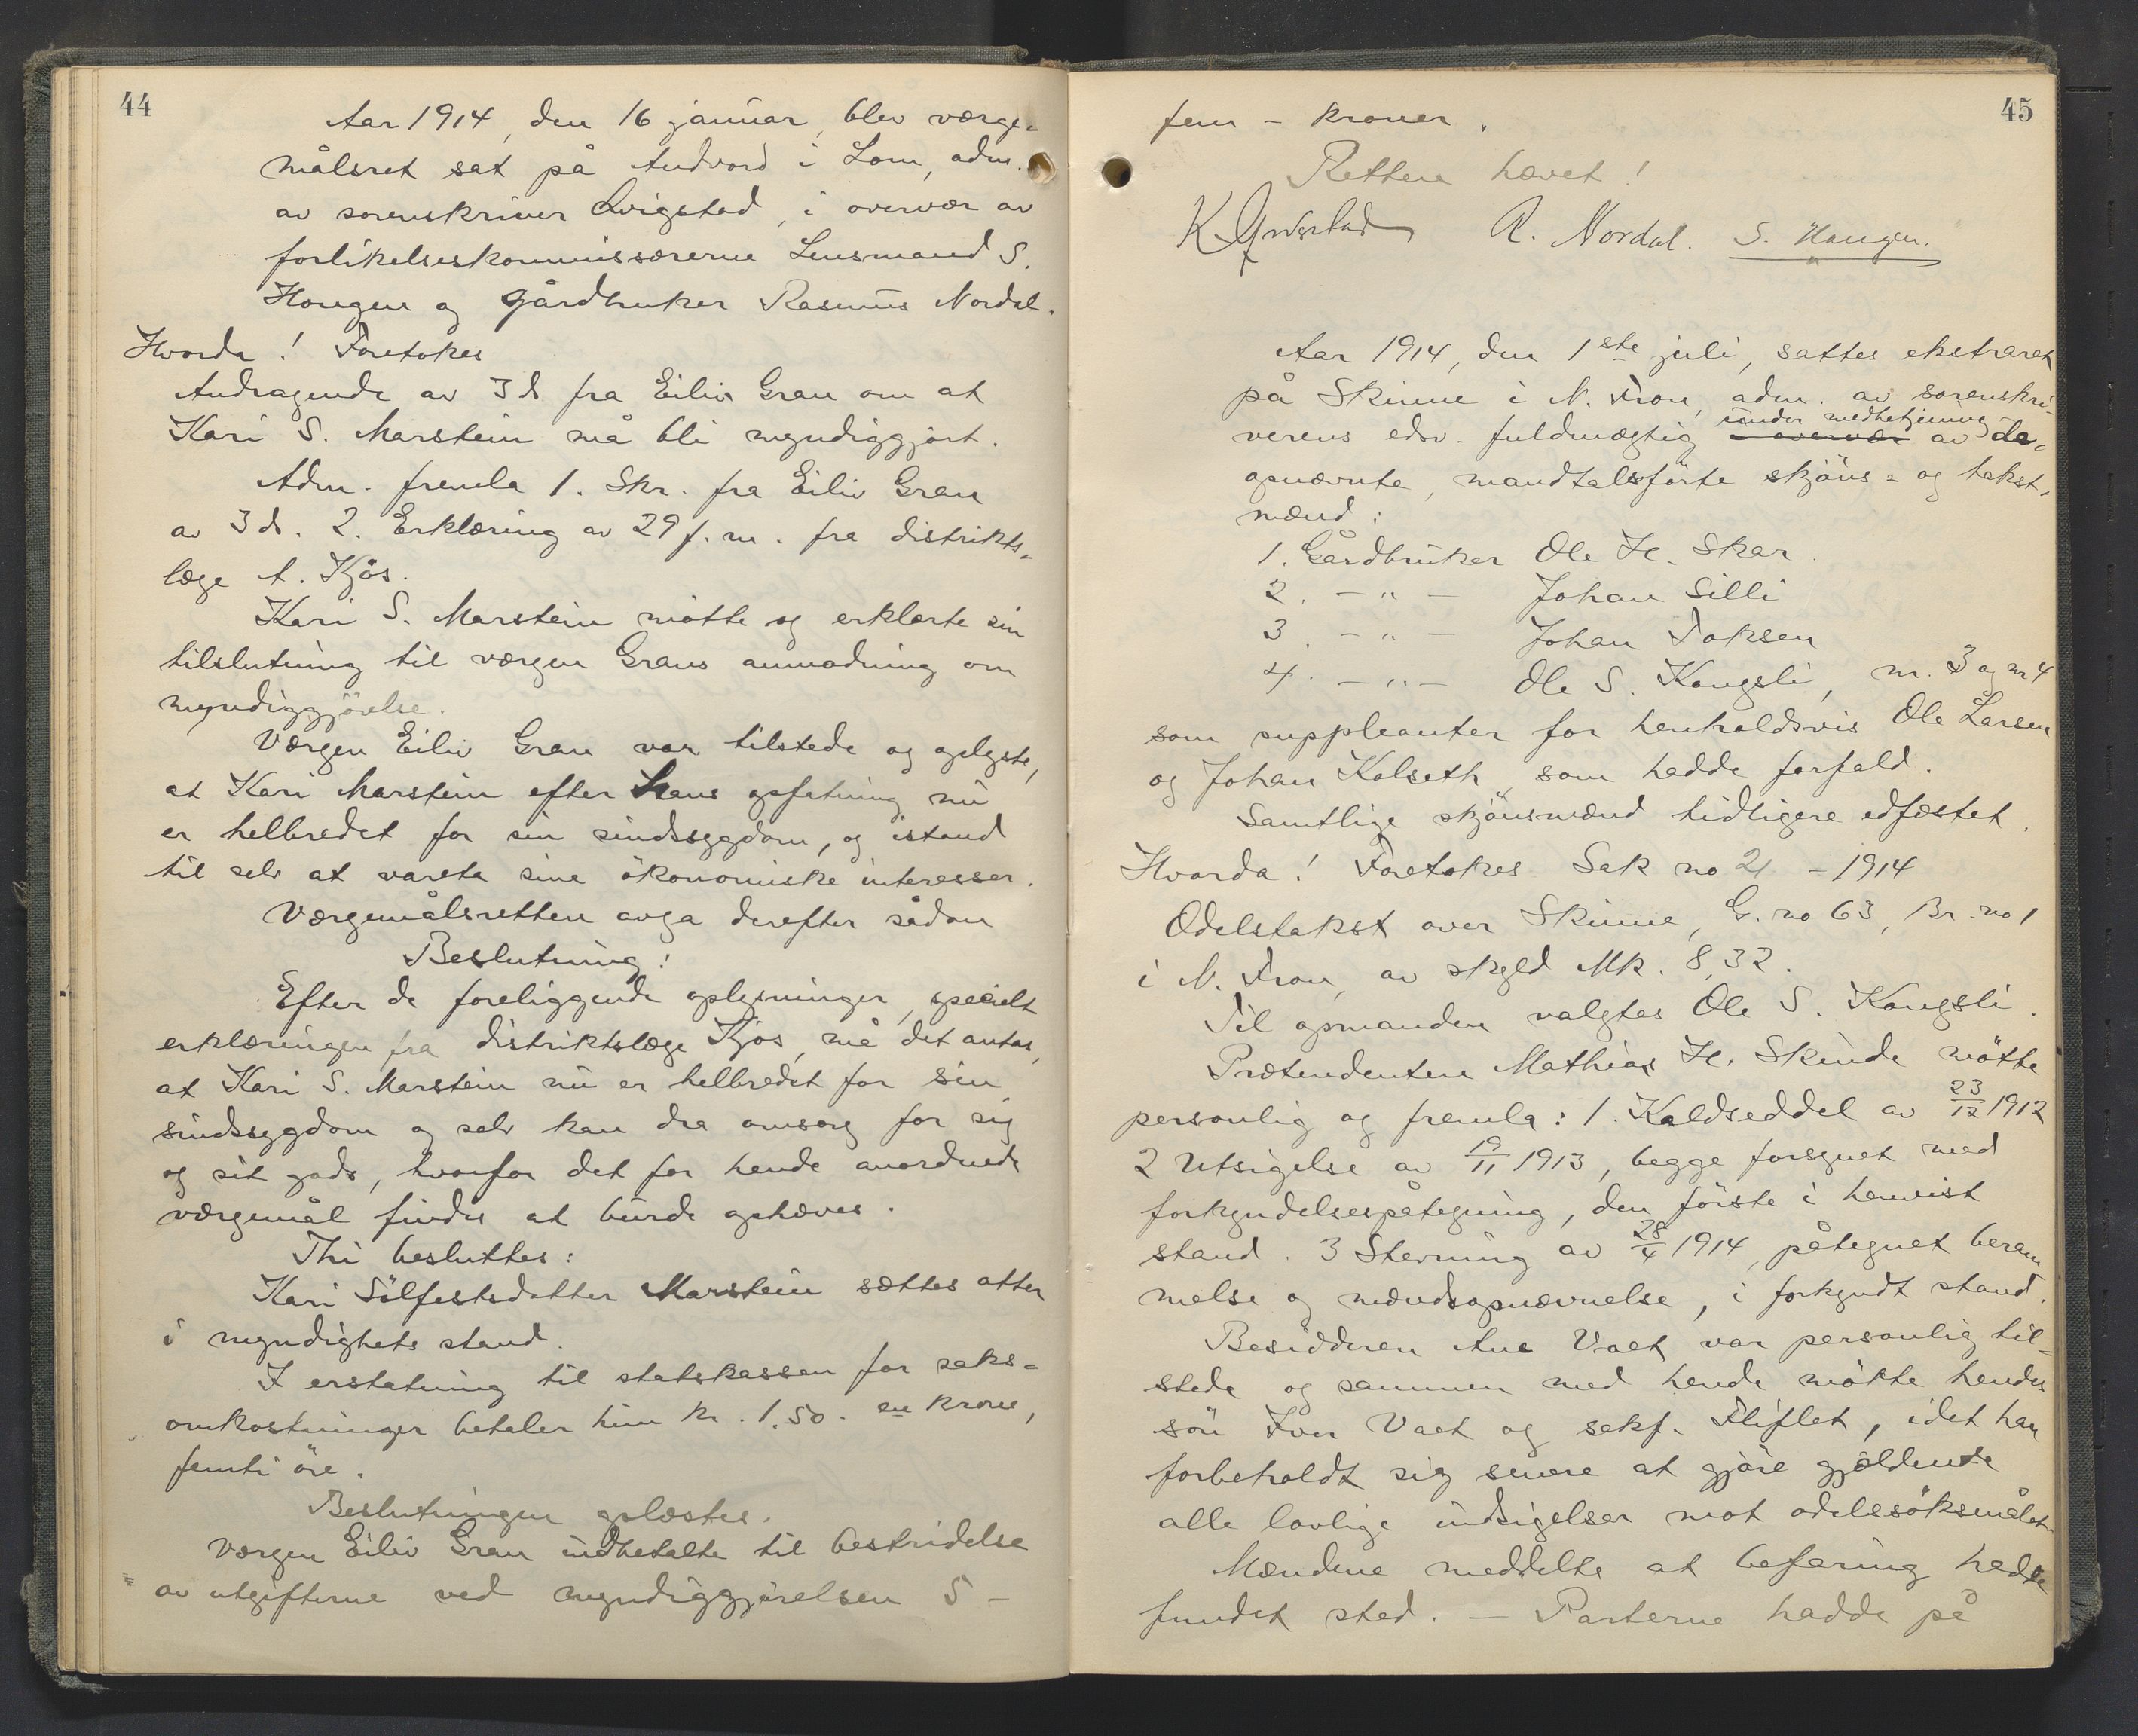 44
Aar 1914, den 16 januar, blev værge-
målsret sat på Andvord i Lom, adm.
av sorenskriver Qvigstad, i overvær av
forlikelseskommissærerne Lensmand S.
Haugen og gårdbruker Rasmus Nordal.
Hvorda! Foretokes
Andragende av 3 ds fra Eiliv Gran om at
Kari S. Marstein må bli myndiggjort.
Adm. fremla 1. Skr. fra Eiliv Gran
av 3 ds. 2. Erklæring av 29 f. m. fra distrikts-
læge A. Kjös.
Kari S. Marstein mötte og erklærte sin
tilslutning til værgen Grans anmodning om
myndiggjörelse.
Værgen Eiliv Gran var tilstede og oplyste,
at Kari Marstein efter hans opfatning nu
er helbredet for sin sindssygdom, og istand
til selv at vareta sine ökonomiske interesser.
Værgemålsretten avga derefter sådan
Beslutning:
Efter de foreliggende oplysninger, specielt
erklæringen fra distriktslæge Kjös, må det antas,
at Kari S. Marstein nu er helbredet for sin
sindssygdom og selv kan dra omsorg for sig
og sit gods, hvorfor det for hende anordnede
værgemål findes at burde ophæves.
Thi besluttes:
Kari Sölfestsdatter Marstein sættes atter
i myndighets stand.
I erstatning til statskassen for saks-
omkostninger betaler hun kr. 1.50. en krone,
femti öre.
Beslutningen oplæstes.
Værgen Eiliv Gran indbetalte til bestridelse
av utgifterne ved myndiggjörelsen 5 -
45
fem - kroner.
Retten hævet!
K Qvigstad R. Nordal. S. Haugen.
Aar 1914, den 1ste juli, sattes ekstraret
på Skinne i N. Fron, adm. av sorenskri-
verens edsv. fuldmægtig i overvær under medbetjening av de
opnævnte, mandtalsförte skjöns- og takst-
mænd:
1. Gårdbruker Ole H. Skar
2. - " - Johan Silli
3. - " - Johan Toksen
4. - " - Ole S. Kongsli, nr. 3 og nr 4
som suppleanter for henholdsvis Ole Larsen
og Johan Kolseth, som hadde forfald.
Samtlige skjönsmænd tidligere edfæstet.
Hvorda! Foretokes Sak no 21 - 1914
Odelstakst over Skinne, G. no 63, Br. no 1
i N. Fron, av skyld Mk. 8,32.
Til opmanden valgtes Ole S. Kongsli.
Prætendenten Mathias H. Skinde mötte
personlig og fremla: 1. Kaldseddel av 23/12 1912
2 Utsigelse av 19/11 1913, begge forsynet med
forkyndelsespåtegning, den förste i henvist
stand. 3 Stevning av 28/4 1914, påtegnet beram
melse og mændsopnævnelse, i forkyndt stand.
Besidderen Ane Vaet var personlig til-
stede og sammen med hende mötte hendes
sön Iver Vaet og sakf. Fliflet, idet han
forbeholdt sig senere at gjöre gjældende
alle lovlige indsigelser mot odelssöksmålet.
Mændene meddelte at befaring hadde
fundet sted. - Parterne hadde på